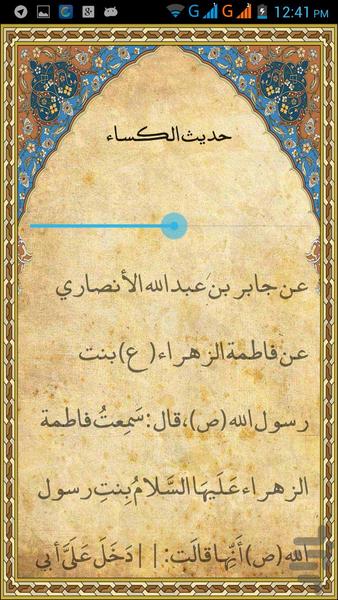 12:41 PM
حديث الكساء
عن جابر بن عبد الله الأنصاري
عن فاطمة الزهراء (ع) بنت
رسول الله (ص)، قال: سَمِعتُ فاطمة
الزهراء عَلَيهَا السَّلامُ بِنتِ رسول
الله (ص) أَنَّها قالَت: || دَخَلَ عَلَيَّ أبي